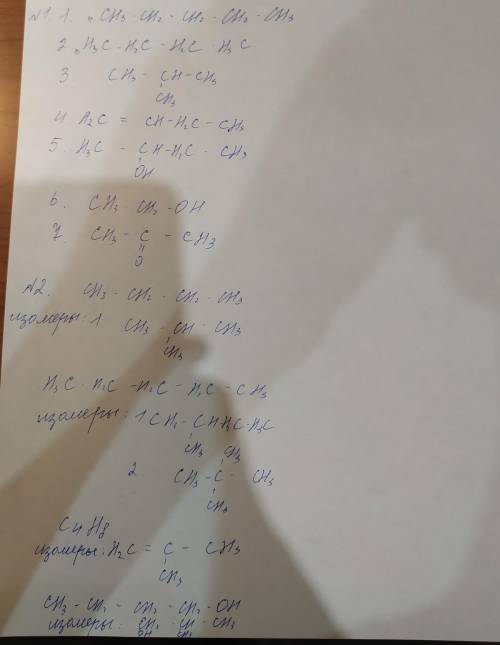 N1. 1. CH3 - CH2 - CH2 - CH2 - CH3
2. H3C - H2C - H2C - H3C
3 CH3 - CH - CH3
CH3
4 H2C = CH - H2C - CH3
5. H3C - CH - H2C - CH3
OH
6. CH3 - CH2 - OH
7. CH3 - C - CH3
O
N2. CH3 - CH2 - CH2 - CH3
изомеры: 1. CH3 - CH - CH3
CH3
H3C - H2C - H2C - H2C - CH3
изомеры: 1 CH3 - CH - H2C - H3C
CH3 CH3
2 CH3 - C - CH3
CH3
C4H8
изомеры: H2C = C - CH3
CH3
CH3 - CH2 - CH2 - CH2 - OH
изомеры: CH2 - CH - CH3
OH CH3